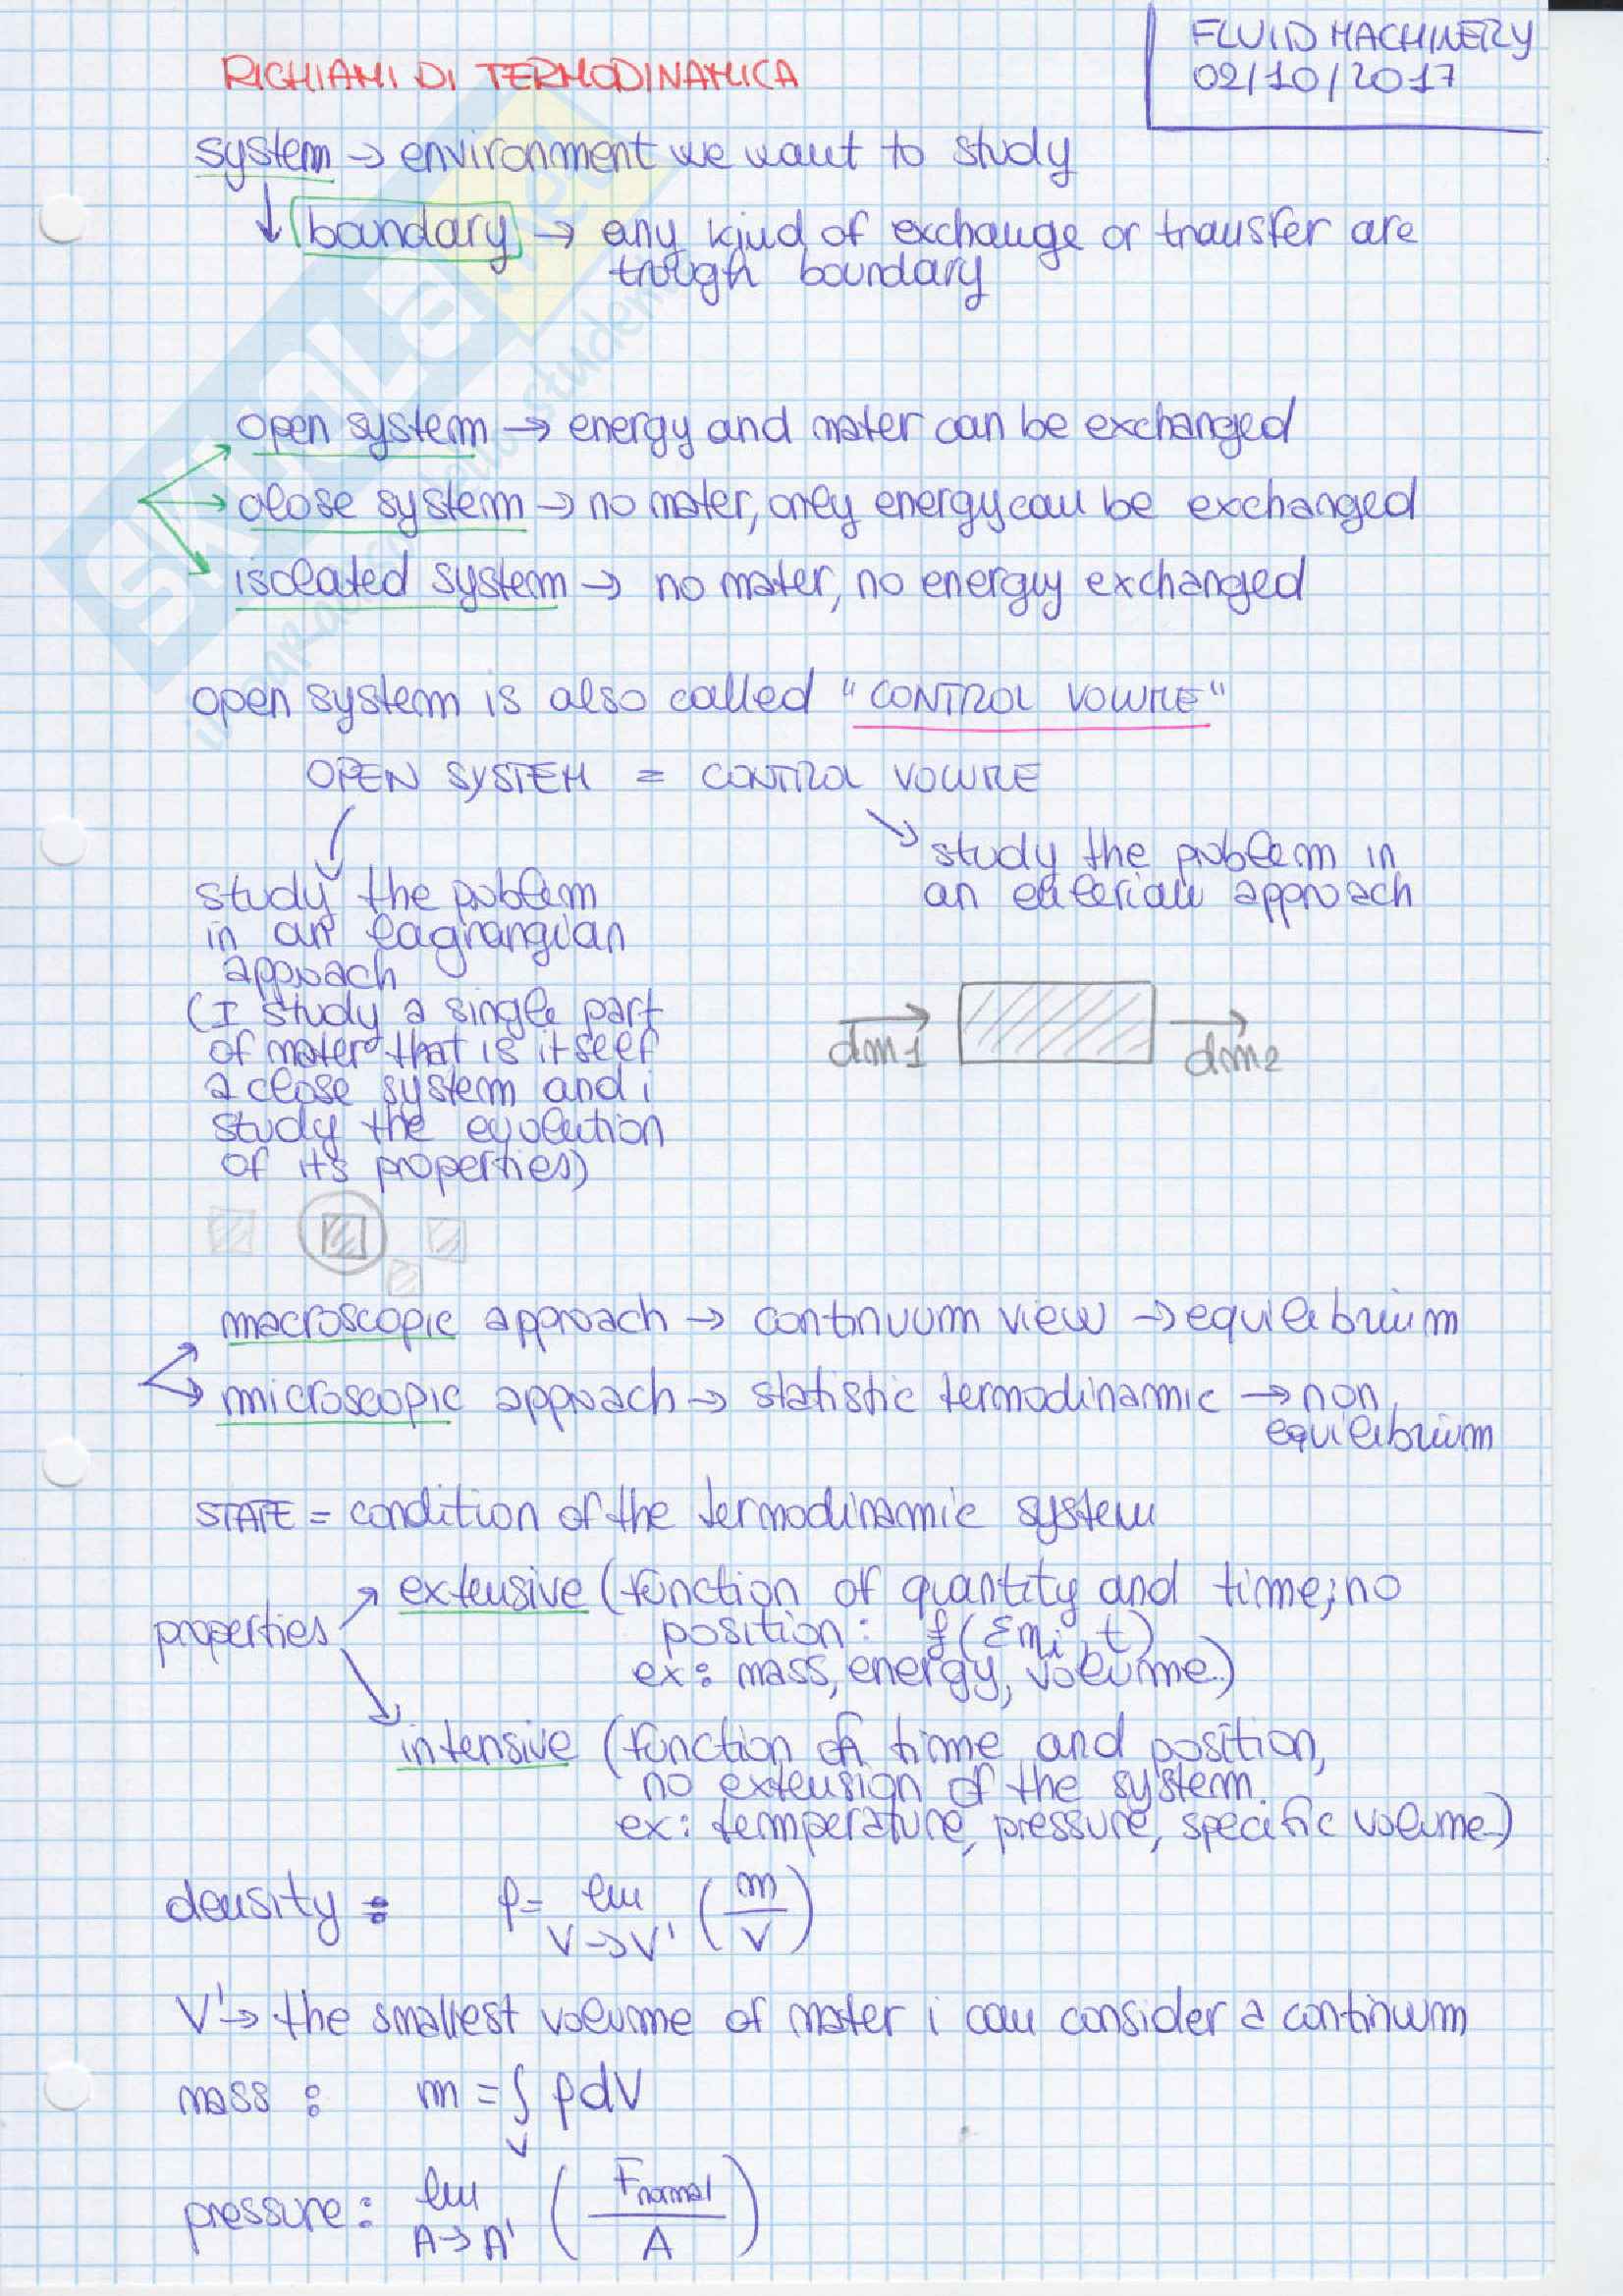 FLUID MACHINERY
02/10/2017
RICHIAMI DI TERMODINAMICA
system → environment we want to study
↓ boundary → any kind of exchange or transfer are
trough boundary
open system → energy and mater can be exchanged
close system → no mater, only energy can be exchanged
isolated system → no mater, no energy exchanged
open system is also called "CONTROL VOLUME"
OPEN SYSTEM = CONTROL VOLUME
study the problem in
an eulerian approach
study the problem
in an lagrangian
approach
(I study a single part
of mater that is itself
a close system and i
study the evolution
of its properties)
dm1
dm2
macroscopic approach → continuum view → equilibrium
microscopic approach → statistic termodinamic → non
equilibrium
STATE = condition of the termodinamic system
properties
extensive (function of quantity and time; no
position: f(Σmi, t)
ex: mass, energy, volume..)
intensive (function of time and position,
no extension of the system.
ex: temperature, pressure, specific volume..)
density: ρ = lim V→V' (m/V)
V' → the smallest volume of mater i can consider a continuum
mass: m = ∫V ρdV
pressure: lim A→A' (Fnormal/A)
SKUOLA.net